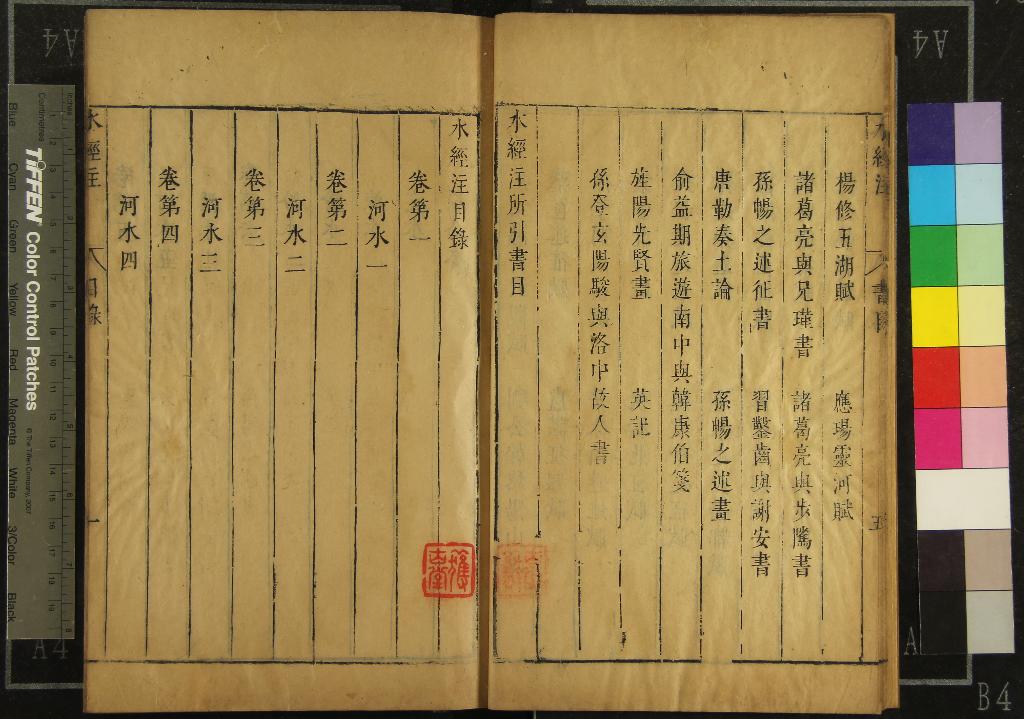 楊修五湖賦 應瑒靈河賦
諸葛亮與兄瑾書 諸葛亮與步騭書
孫暢之述征書 習鑿齒與謝安書
唐勒奏土論 孫暢之述畫
俞益期旅遊南中與韓康伯箋
旌陽先賢畫 英記
孫登玄陽駿與洛中故人書
水經注所引書目
水經注目錄
卷第一
河水一
卷第二
河水二
卷第三
河水三
卷第四
河水四
水經注 目錄 一
Inches
Centimetres
TIFFEN Color Control Patches
© The Tiffen Company, 2007
Blue Cyan Green Yellow Red Magenta White 3/Color Black
A4
A4
A4
A
B4